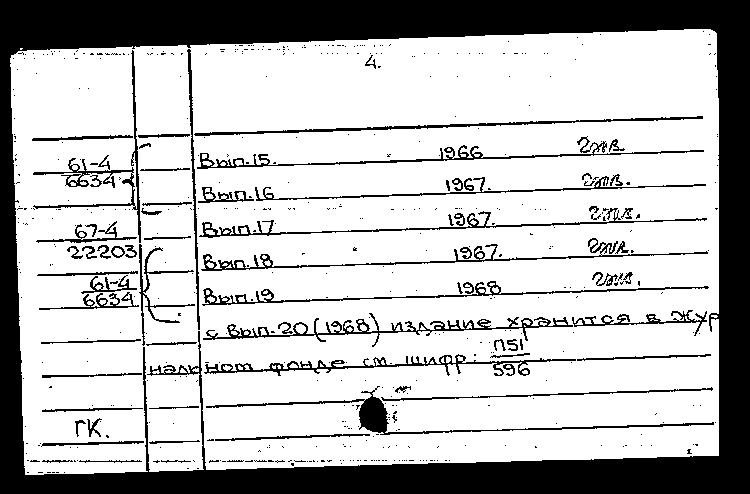 4.
61-4
6634
Вып.15. 1966 2экз.
Вып.16 1967. 2экз.
67-4
22203
Вып.17 1967. 2экз.
61-4
6634
Вып.18 1967. 2экз.
Вып.19 1968 2экз.
с Вып.20 (1968) издание хранится в жур
нальном фонде см. шифр: П51
596
ГК.